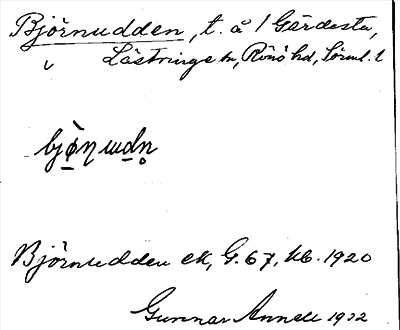 Björnudden, t. å 1 Gärdesta,
v Lästringe sn, Rönö hd, Sörml. l
bjὼ̲ƞ ɯd̲n̥
Björnudden ek, G. 67, Ub. 1920
Gunnar Annell 1932